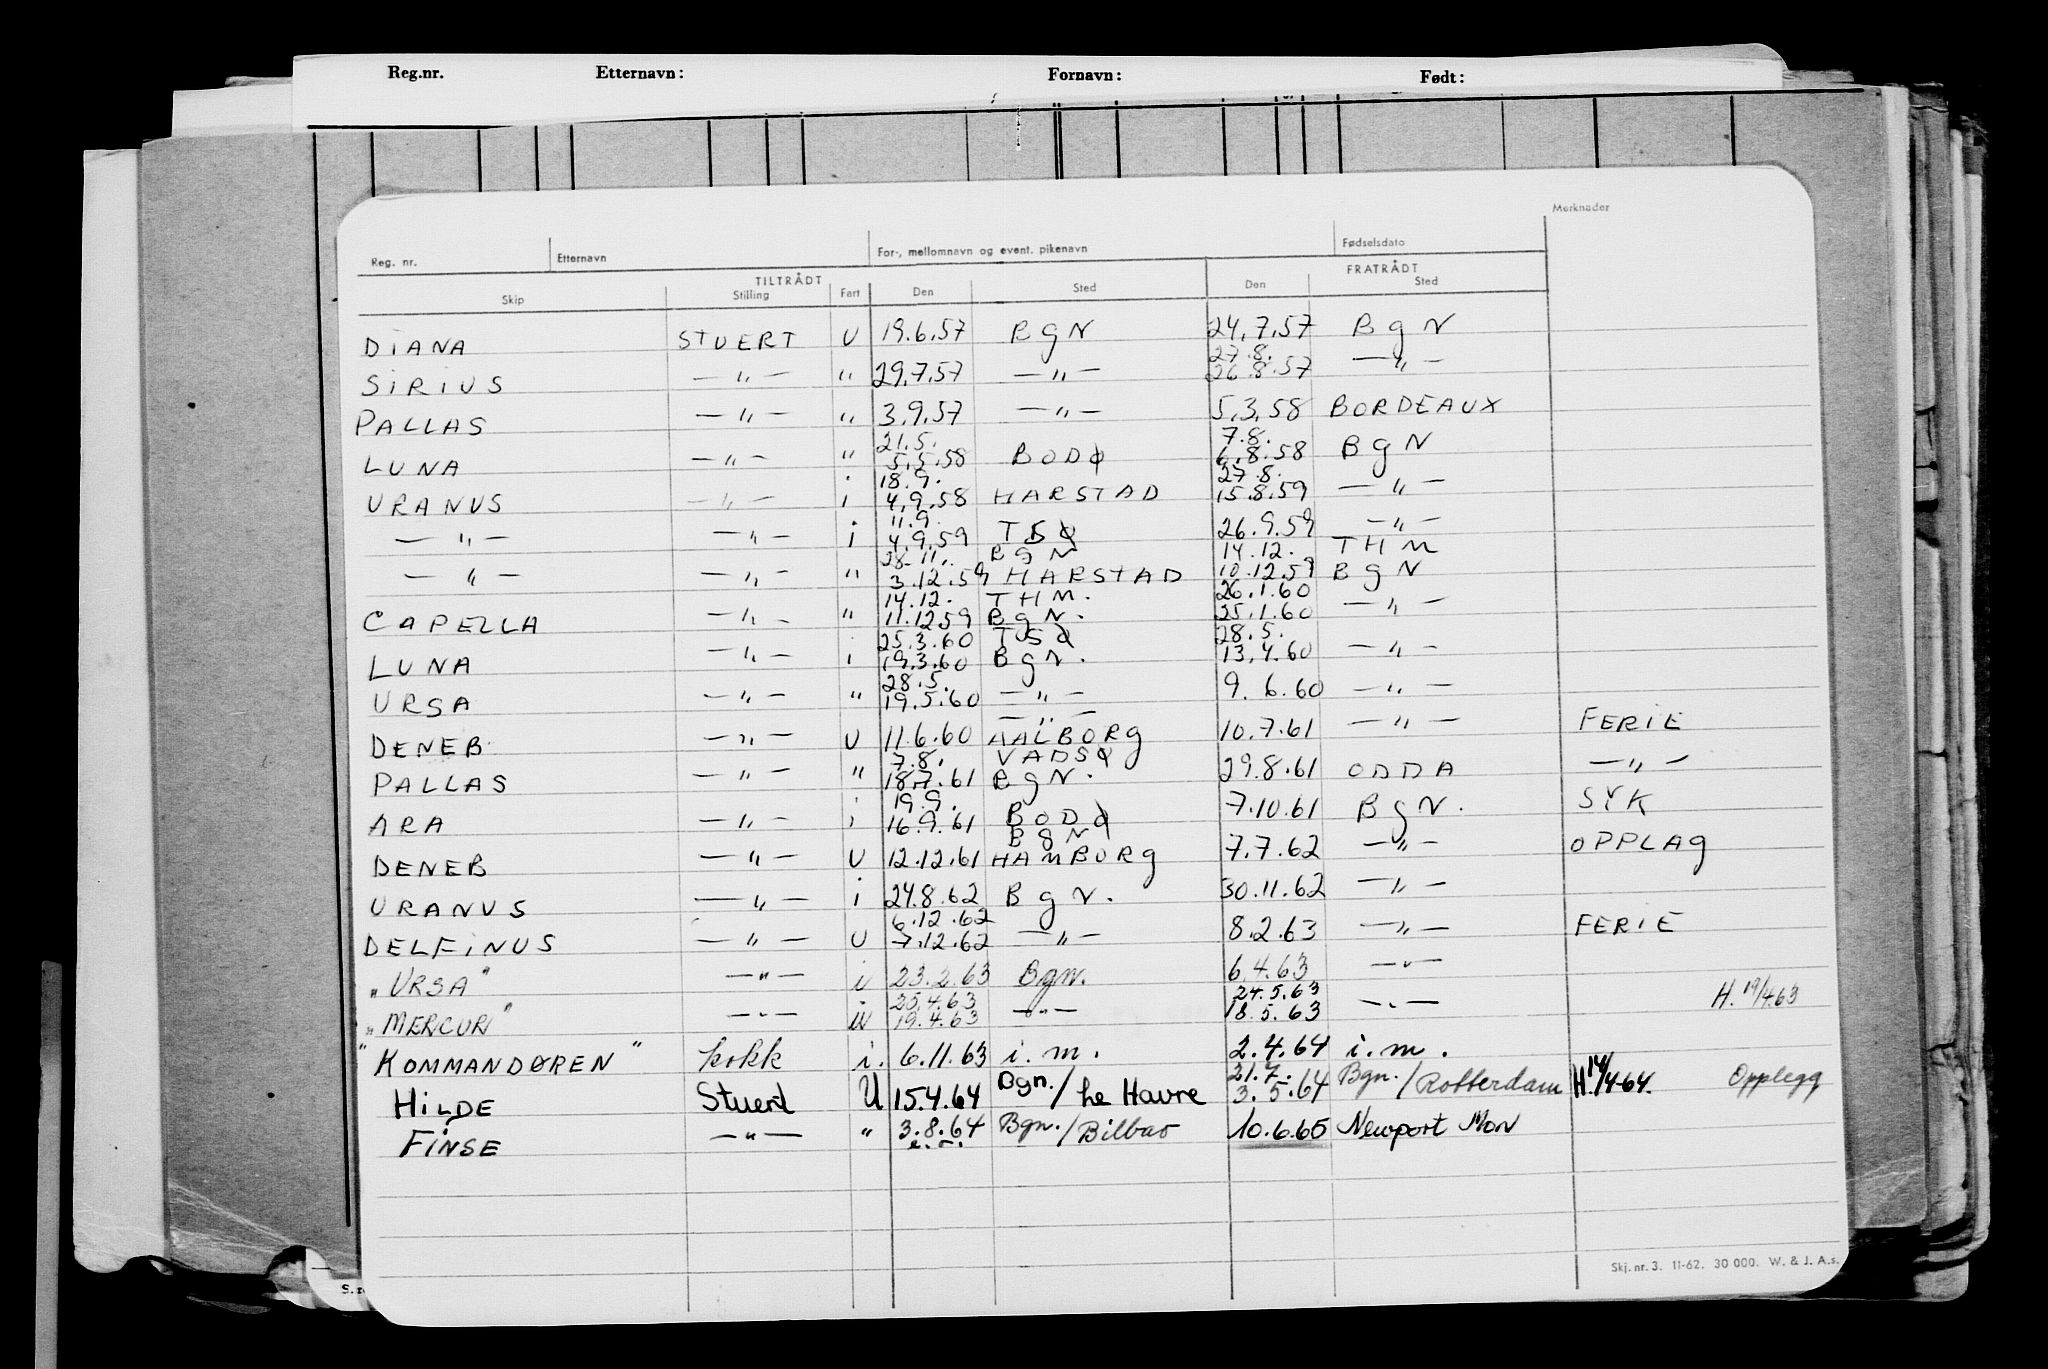 Reg.nr. Etternavn: Fornavn: Født:
Merknader
Reg. nr. Etternavn For-, mellomnavn og event. pikenavn Fødselsdato
TILTRÅDT FRATRÅDT
Skip Stilling Fart Den Sted Den Sted
DIANA STUERT U 19.6.57 BgN 24.7.57 BgN
27.8.
SIRIUS —„— „ 29.7.57 —„— 26.8.57 —„—
PALLAS —„— „ 3.9.57 —„— 5.3.58 BORDEAUX
21.5. 7.8.
LUNA —„— „ 5.5.58 BODØ 6.8.58 BgN
18.9. 27.8.
URANUS —„— i 4.9.58 HARSTAD 15.8.59 —„—
11.9.
—„— —„— i 4.9.59 TSØ 26.9.59 —„—
28.11. BgN 14.12. THM
—„— —„— „ 3.12.59 HARSTAD 10.12.59 BgN
14.12. THM. 26.1.60
CAPELLA —„— „ 11.12.59 BgN. 25.1.60 —„—
25.3.60 TSØ 28.5.
LUNA —„— i 19.3.60 BgN. 13.4.60 —„—
28.5.
URSA —„— „ 19.5.60 —„— 9.6.60 —„—
—„—
DENEB —„— U 11.6.60 AALBORG 10.7.61 —„— FERIE
7.8. VADSØ
PALLAS —„— „ 18.7.61 BgN. 29.8.61 ODDA —„—
19.9.
ARA —„— i 16.9.61 BODØ 7.10.61 BgN. SYK
BgN
DENEB —„— U 12.12.61 HAMBURG 7.7.62 —„— OPPLAG
URANUS —„— i 24.8.62 BgN. 30.11.62 —„—
6.12.62
DELFINUS —„— U 7.12.62 —„— 8.2.63 —„— FERIE
„URSA" —„— i 23.2.63 Bgn. 6.4.63 —„—
25.4.63 24.5.63
„MERCUR" —„— iu 19.4.63 —„— 18.5.63 —„— H. 19/4.63
"KOMMANDØREN" kokk i. 6.11.63 i.m. 2.4.64 i.m.
21.7.
HILDE Stuert U 15.4.64 Bgn./Le Havre 3.5.64 Bgn./Rotterdam H.14/4-64. Opplegg
FINSE —„— „ 3.8.64 Bgn./Bilbao 10.6.65 Newport Mon
Skj. nr. 3. 11-62. 30 000. W. & J. A.s.